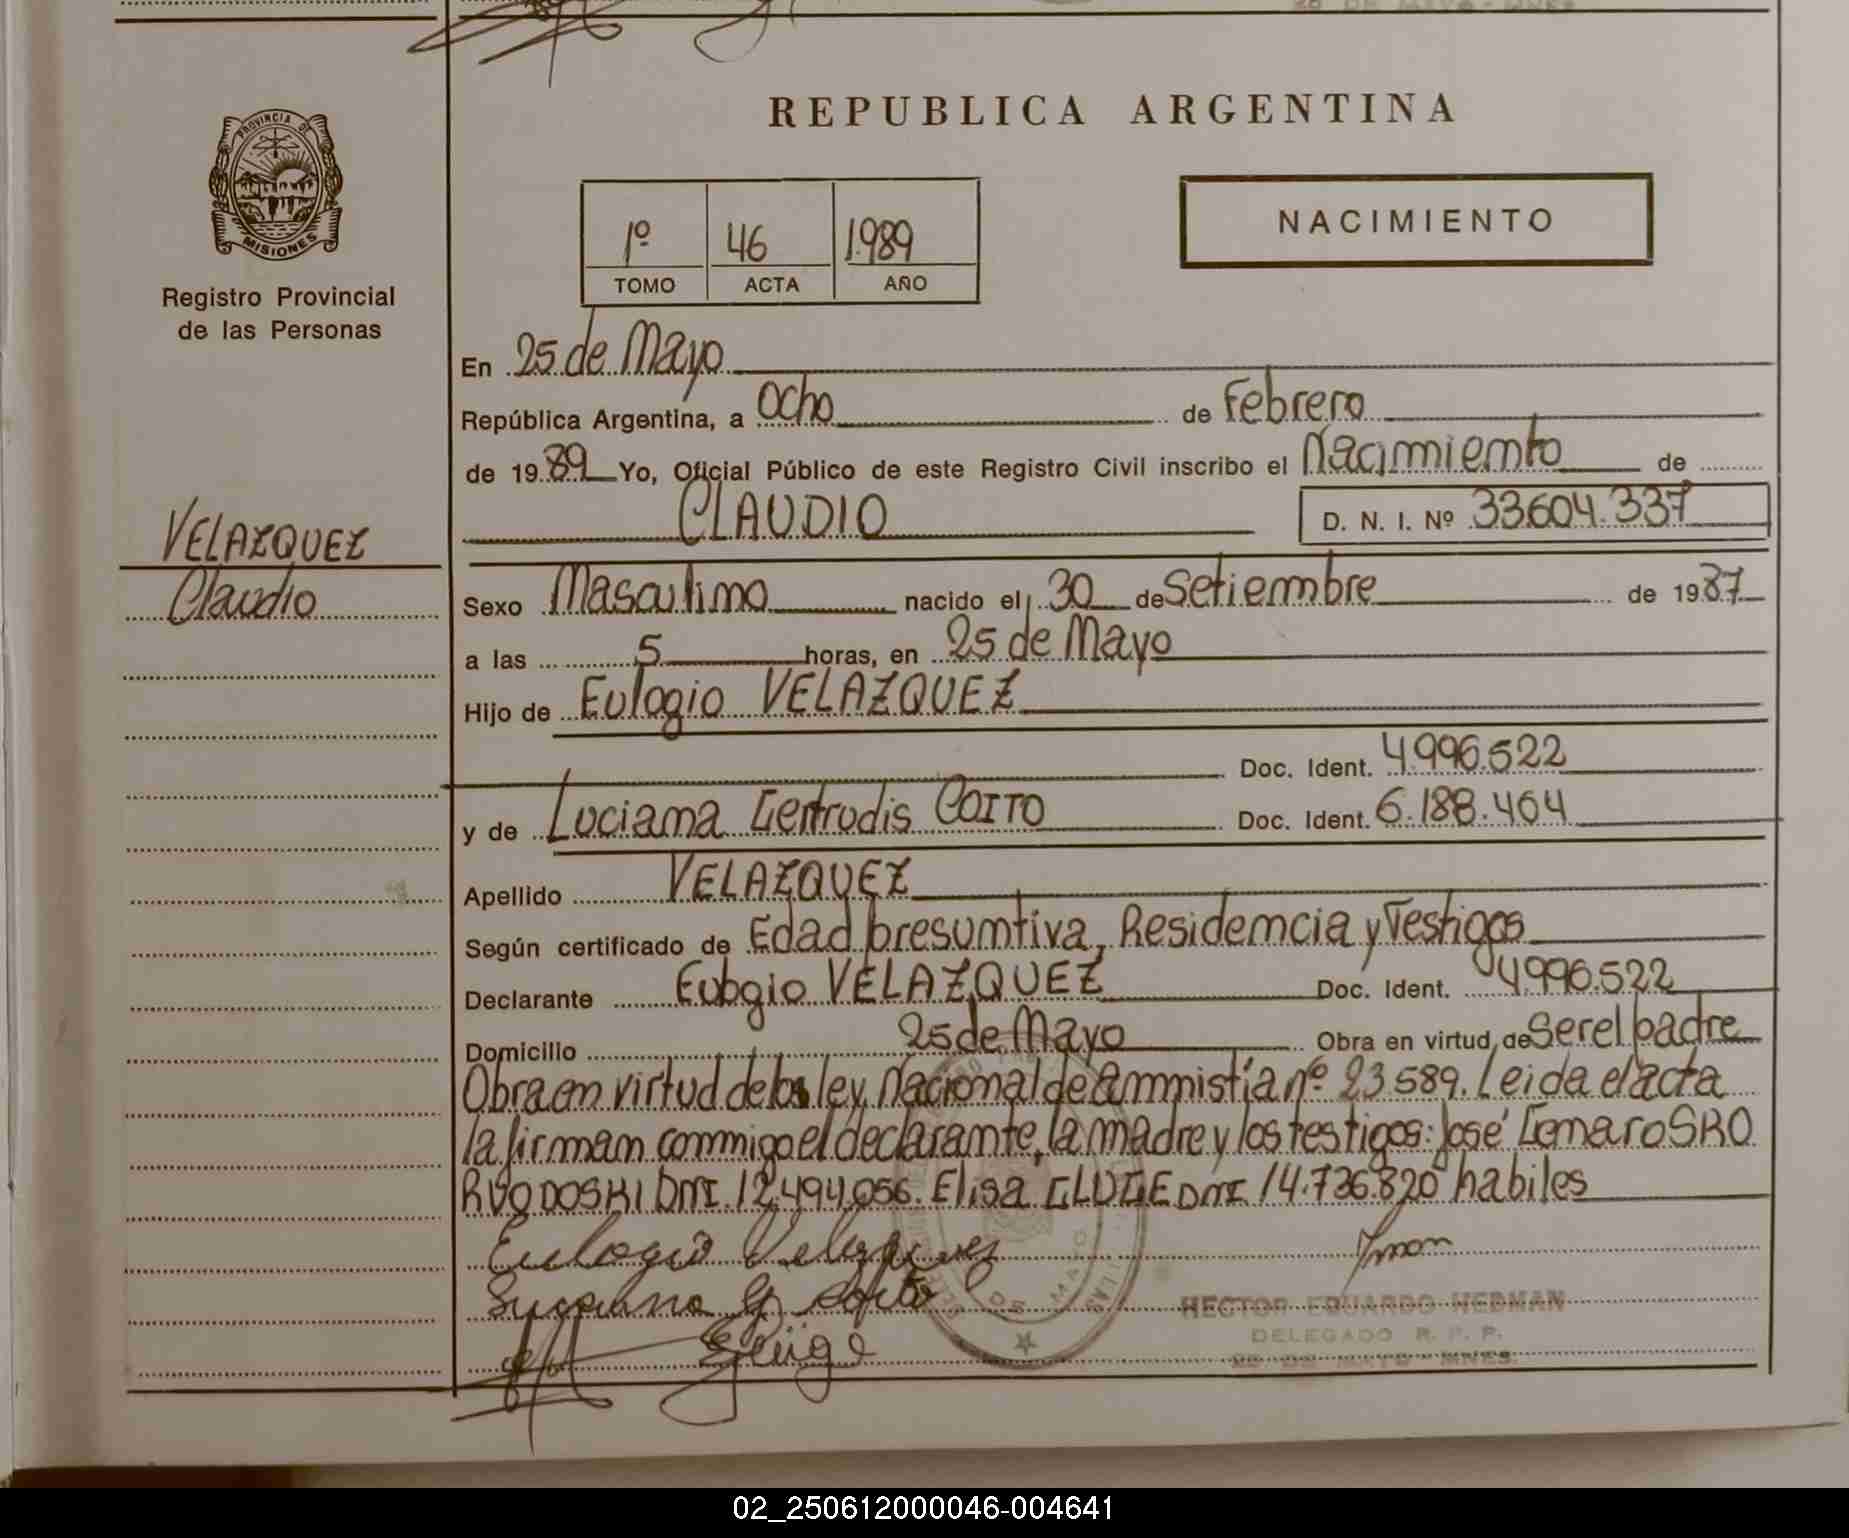 REPUBLICA ARGENTINA
PROVINCIA DE
MISIONES
Registro Provincial
de las Personas
1º 46 1.989
TOMO ACTA AÑO
NACIMIENTO
En 25 de Mayo
República Argentina, a Ocho de Febrero
de 19 89 Yo, Oficial Público de este Registro Civil inscribo el Nacimiento de
CLAUDIO D. N. I. Nº 33.604.337
VELAZQUEZ
Claudio
Sexo Masculino nacido el 30 de Setiembre de 1987
a las 5 horas, en 25 de Mayo
Hijo de Eulogio VELAZQUEZ
Doc. Ident. 4.996.522
y de Luciana Gertrudis COITO Doc. Ident. 6.188.464
Apellido VELAZQUEZ
Según certificado de Edad presumtiva, Residencia y Testigos
Declarante Eulogio VELAZQUEZ Doc. Ident. 4.996.522
Domicilio 25 de Mayo Obra en virtud de ser el padre
Obra en virtud de la ley Nacional de ammistía nº 23.589. Leida el acta
la firman conmigo el declarante, la madre y los testigos: José Genaro SRO
RVODOSKI DNI. 12.494.056. Elisa GLUGE DNI 14.736.820 habiles
Eulogio Velazquez
Luciana G Coito
HECTOR EDUARDO HEDMAN
DELEGADO R. P. P.
25 DE MAYO - MNES.
02_250612000046-004641